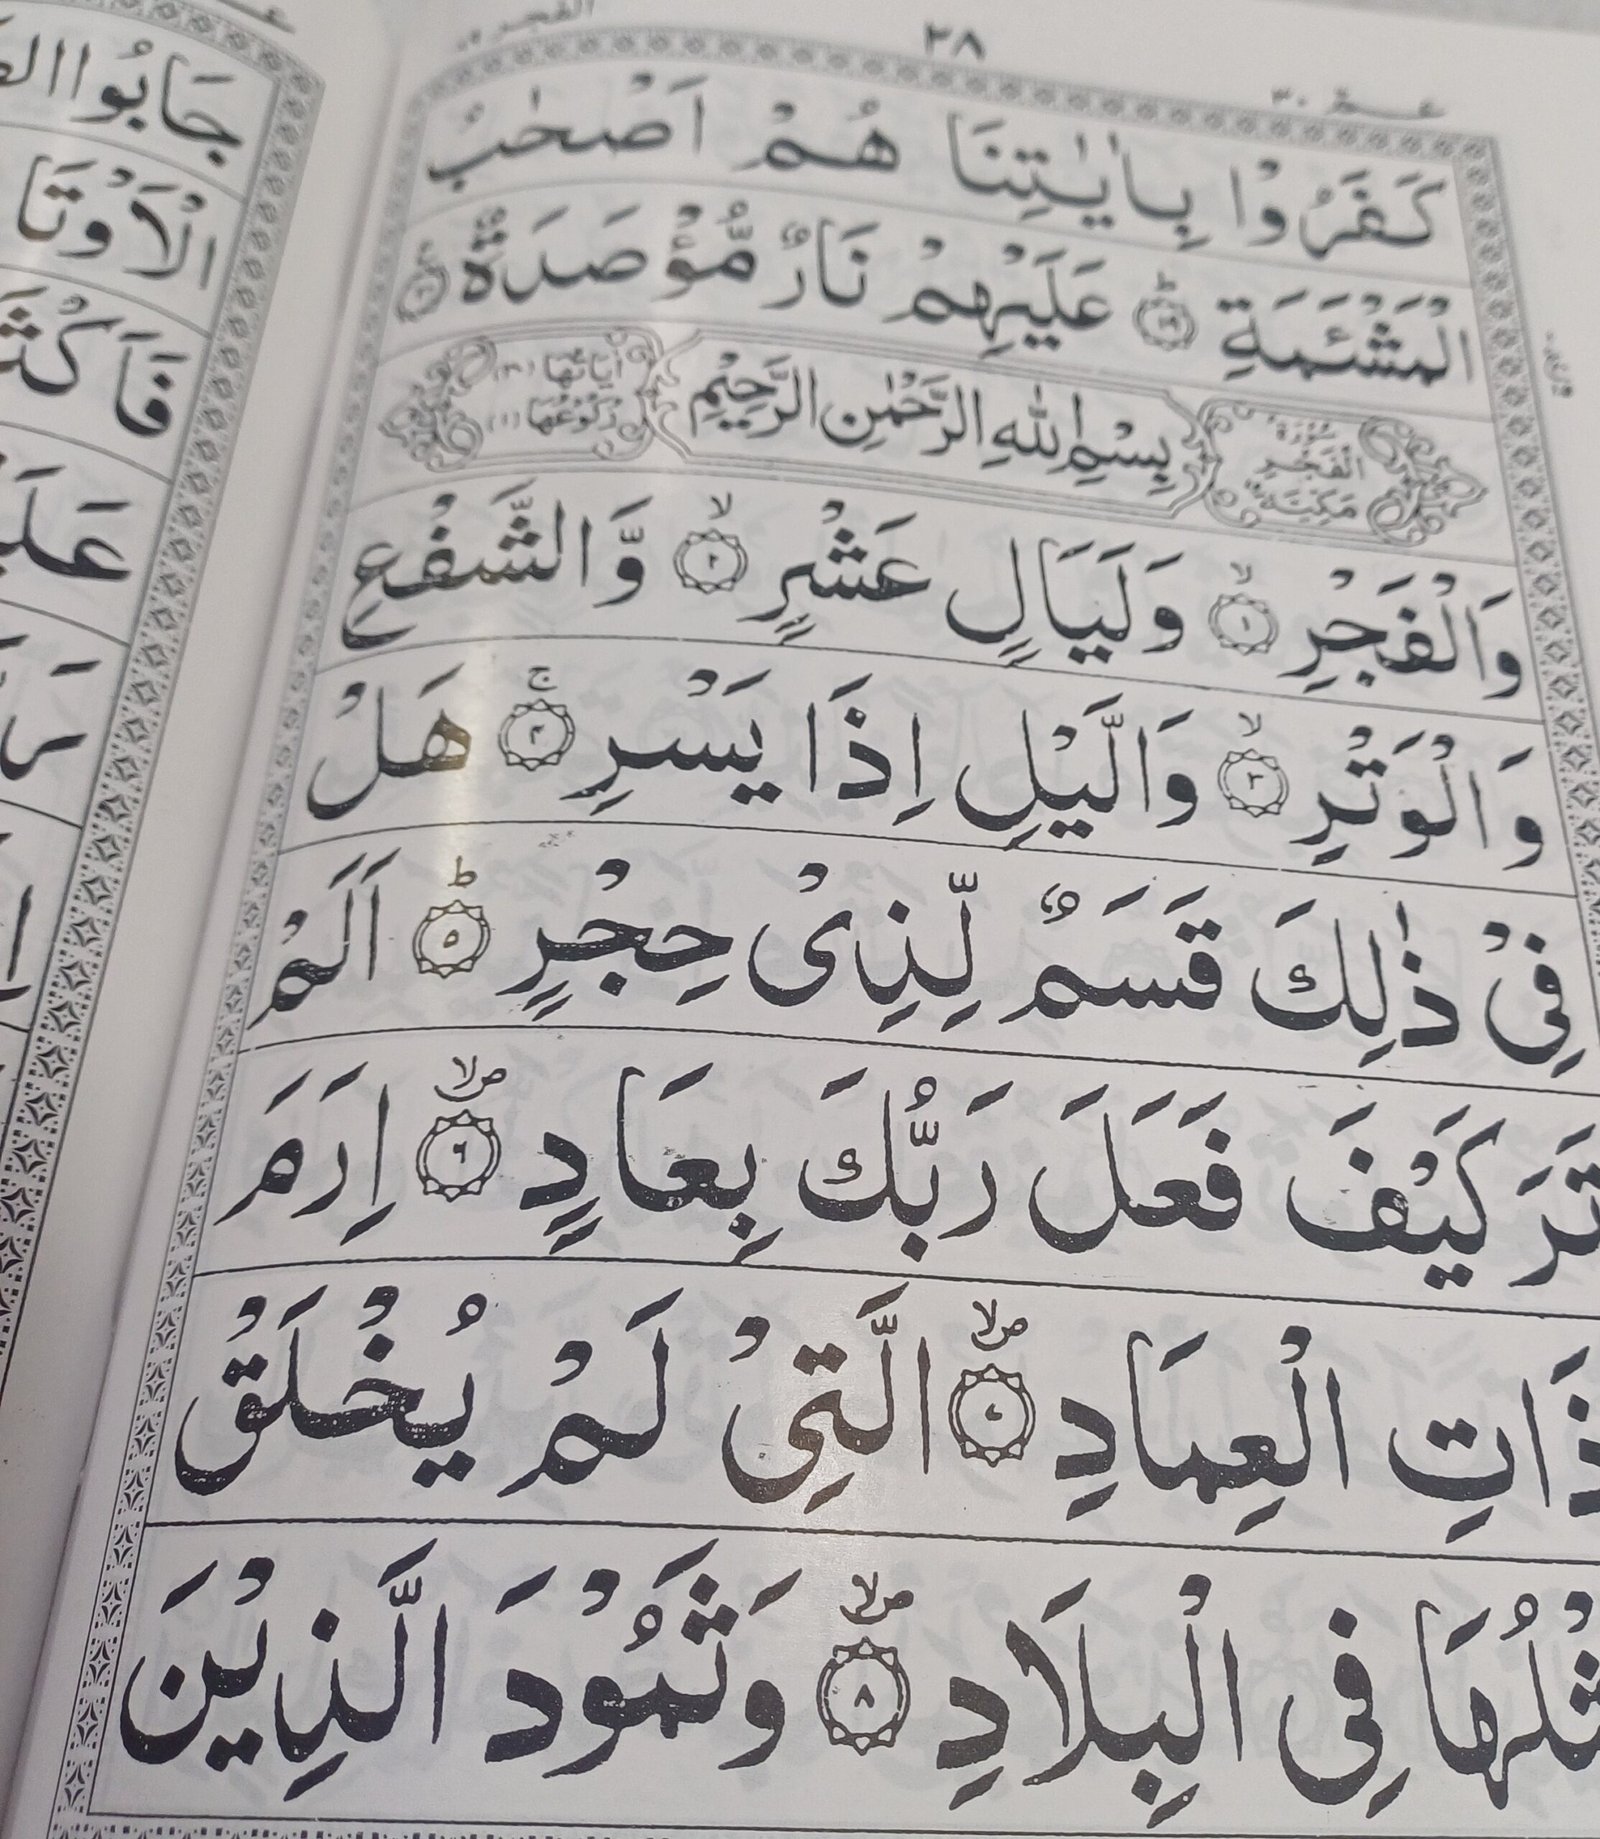 الفجر
٣٨
عـمّ ٣٠
كَفَرُوْا بِاٰيٰتِنَا هُمْ اَصْحٰبُ
الْمَشْـَٔمَةِ ؕ ١٩ عَلَيْهِمْ نَارٌ مُّؤْصَدَةٌ ٢٠
سُوْرَةُ الْفَجْرِ مَكِّيَّةٌ
بِسْمِ اللّٰهِ الرَّحْمٰنِ الرَّحِيْمِ
اٰيَاتُهَا (٣٠) رُكُوْعُهَا (١)
وَالْفَجْرِ ۙ ١ وَلَيَالٍ عَشْرٍ ۙ ٢ وَّالشَّفْعِ
وَالْوَتْرِ ۙ ٣ وَالَّيْلِ اِذَا يَسْرِ ۚ ٤ هَلْ
فِيْ ذٰلِكَ قَسَمٌ لِّذِيْ حِجْرٍ ؕ ٥ اَلَمْ
تَرَ كَيْفَ فَعَلَ رَبُّكَ بِعَادٍ ۪ۙ ٦ اِرَمَ
ذَاتِ الْعِمَادِ ۪ۙ ٧ الَّتِيْ لَمْ يُخْلَقْ
ثْلُهَا فِي الْبِلَادِ ۪ۙ ٨ وَثَمُوْدَ الَّذِيْنَ
جَابُوا
الْاَوْتَا